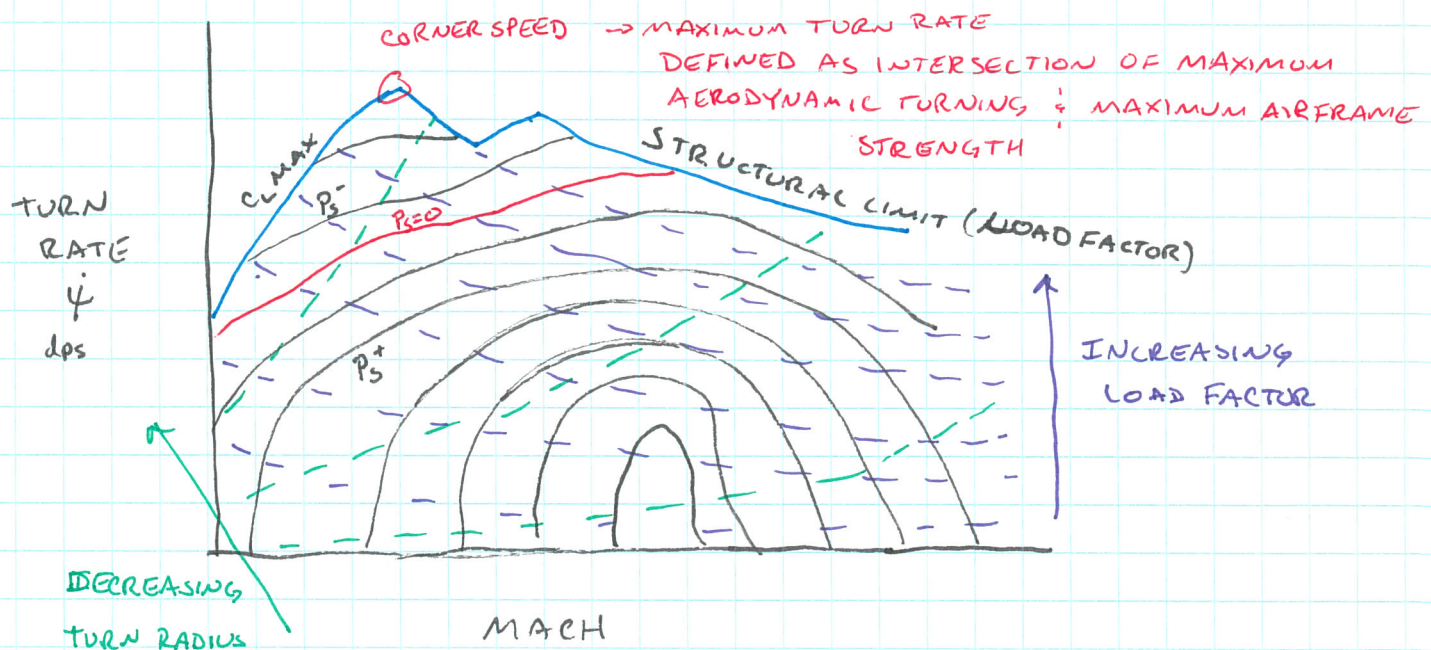 CORNER SPEED → MAXIMUM TURN RATE
DEFINED AS INTERSECTION OF MAXIMUM
AERODYNAMIC TURNING & MAXIMUM AIRFRAME
STRENGTH
CL MAX
STRUCTURAL LIMIT (LOAD FACTOR)
Ps-
Ps=0
Ps+
TURN
RATE
ψ̇
dps
INCREASING
LOAD FACTOR
DECREASING
TURN RADIUS
MACH